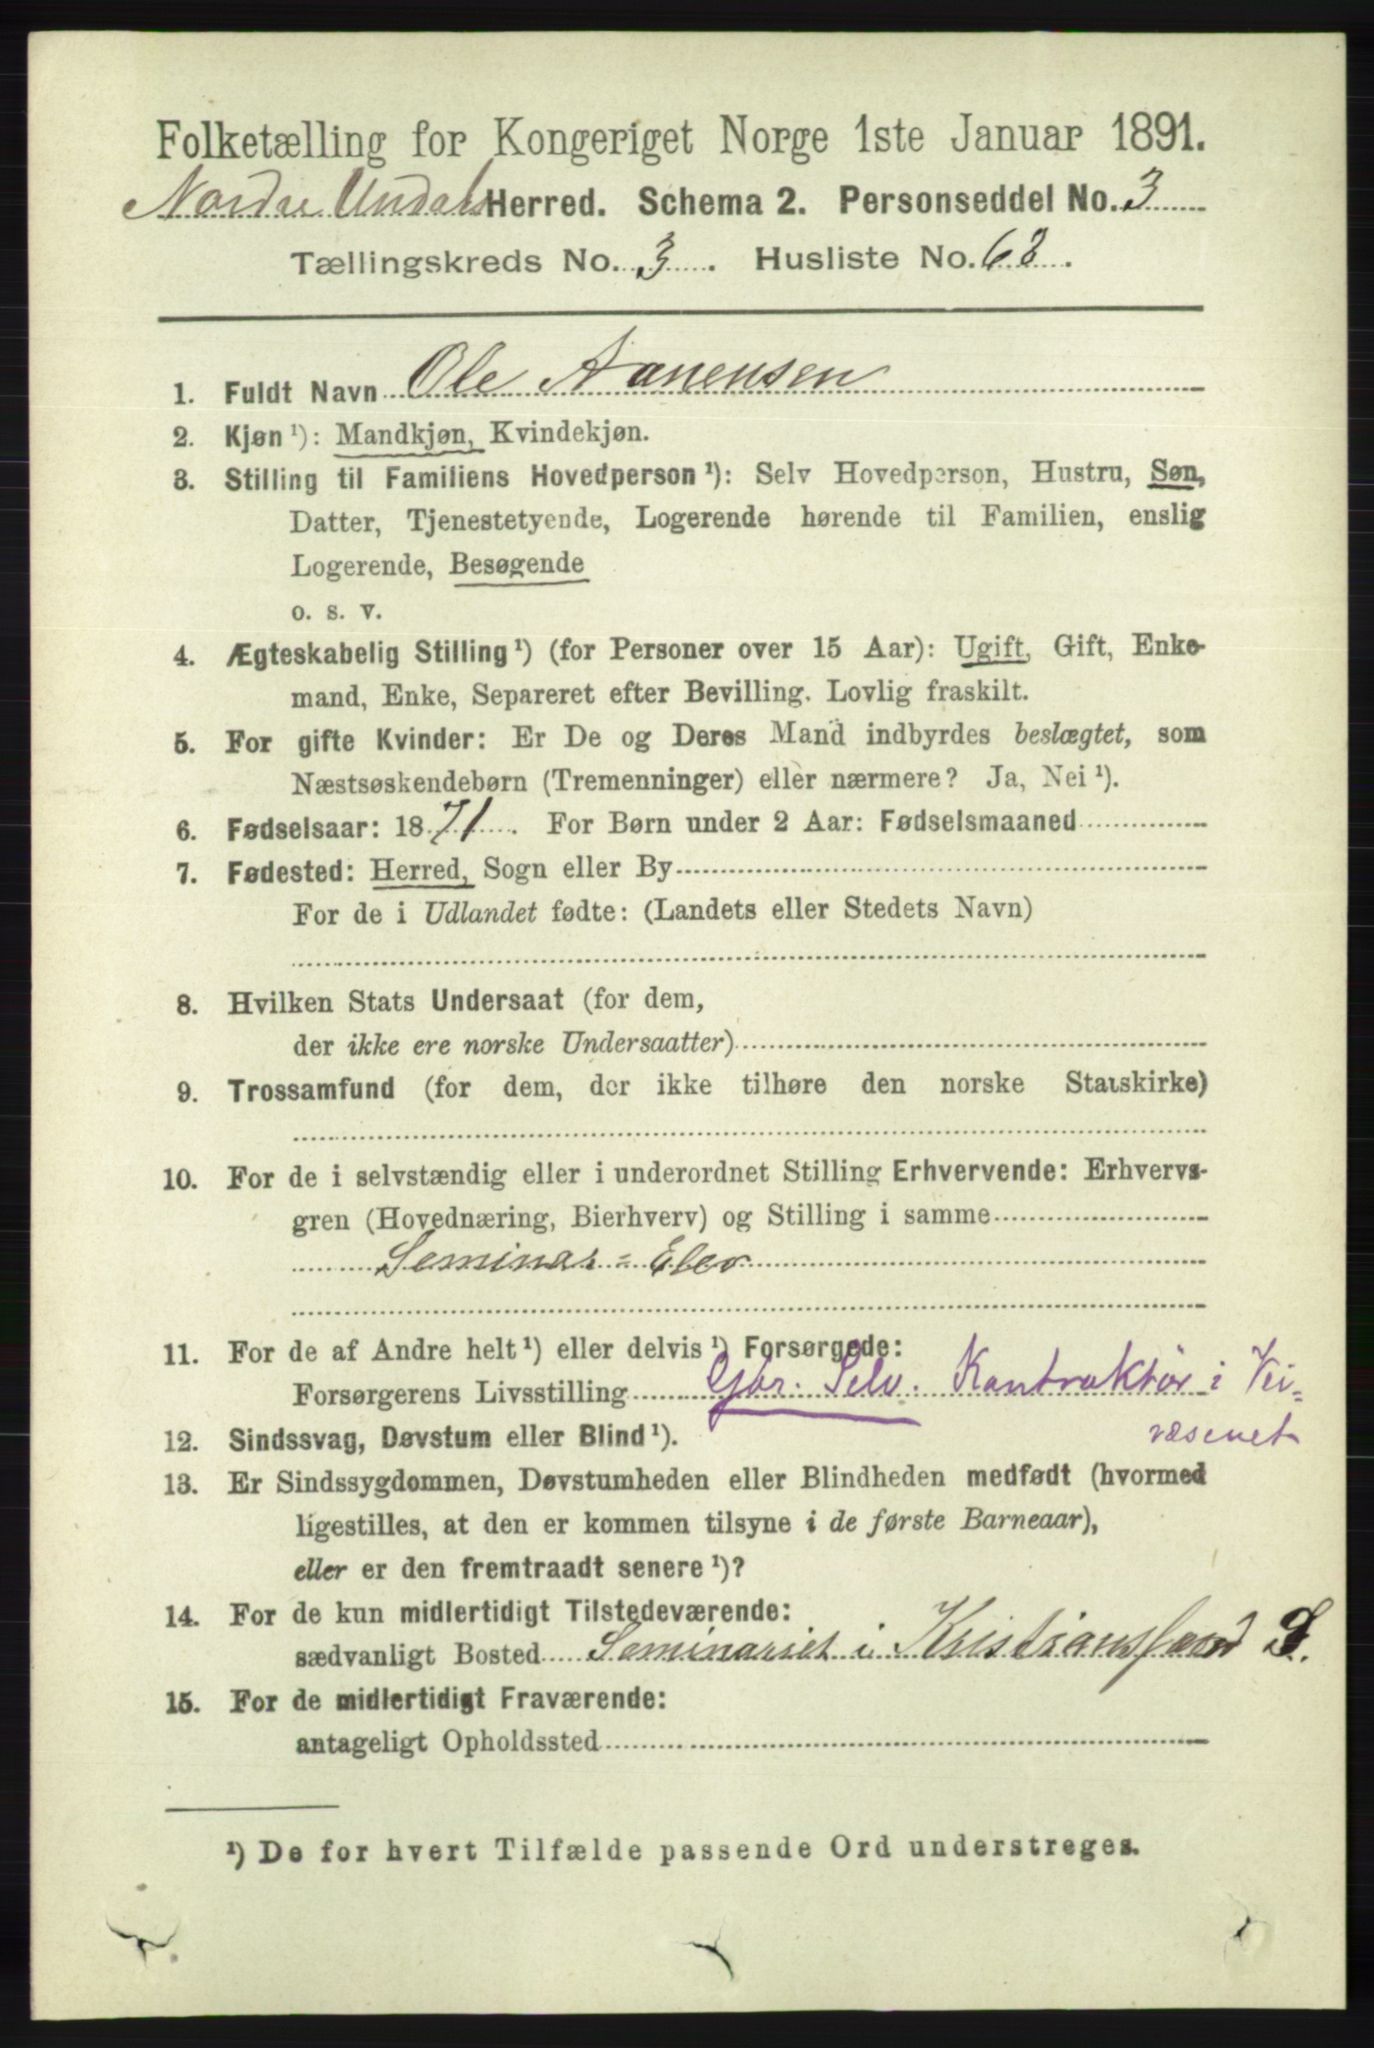 Folketælling for Kongeriget Norge 1ste Januar 1891.
Nordre Undals Herred. Schema 2. Personseddel No. 3
Tællingskreds No. 3. Husliste No. 63.
1. Fuldt Navn Ole Aanensen
2. Kjøn ¹): Mandkjøn, Kvindekjøn.
3. Stilling til Familiens Hovedperson ¹): Selv Hovedperson, Hustru, Søn,
Datter, Tjenestetyende, Logerende hørende til Familien, enslig
Logerende, Besøgende
o. s. v.
4. Ægteskabelig Stilling ¹) (for Personer over 15 Aar): Ugift, Gift, Enke-
mand, Enke, Separeret efter Bevilling. Lovlig fraskilt.
5. For gifte Kvinder: Er De og Deres Mand indbyrdes beslægtet, som
Næstsøskendebørn (Tremenninger) eller nærmere? Ja, Nei ¹).
6. Fødselsaar: 1871. For Børn under 2 Aar: Fødselsmaaned
7. Fødested: Herred, Sogn eller By
For de i Udlandet fødte: (Landets eller Stedets Navn)
8. Hvilken Stats Undersaat (for dem,
der ikke ere norske Undersaatter)
9. Trossamfund (for dem, der ikke tilhøre den norske Statskirke)
10. For de i selvstændig eller i underordnet Stilling Erhvervende: Erhvervs-
gren (Hovednæring, Bierhverv) og Stilling i samme
Seminar=Elev
11. For de af Andre helt ¹) eller delvis ¹) Forsørgede:
Forsørgerens Livsstilling Gbr. Selv. Kontraktør i Vei-
væsenet
12. Sindssvag, Døvstum eller Blind ¹).
13. Er Sindssygdommen, Døvstumheden eller Blindheden medfødt (hvormed
ligestilles, at den er kommen tilsyne i de første Barneaar),
eller er den fremtraadt senere ¹)?
14. For de kun midlertidigt Tilstedeværende:
sædvanligt Bosted Seminariet i Kristianssand S.
15. For de midlertidigt Fraværende:
antageligt Opholdssted
¹) De for hvert Tilfælde passende Ord understreges.